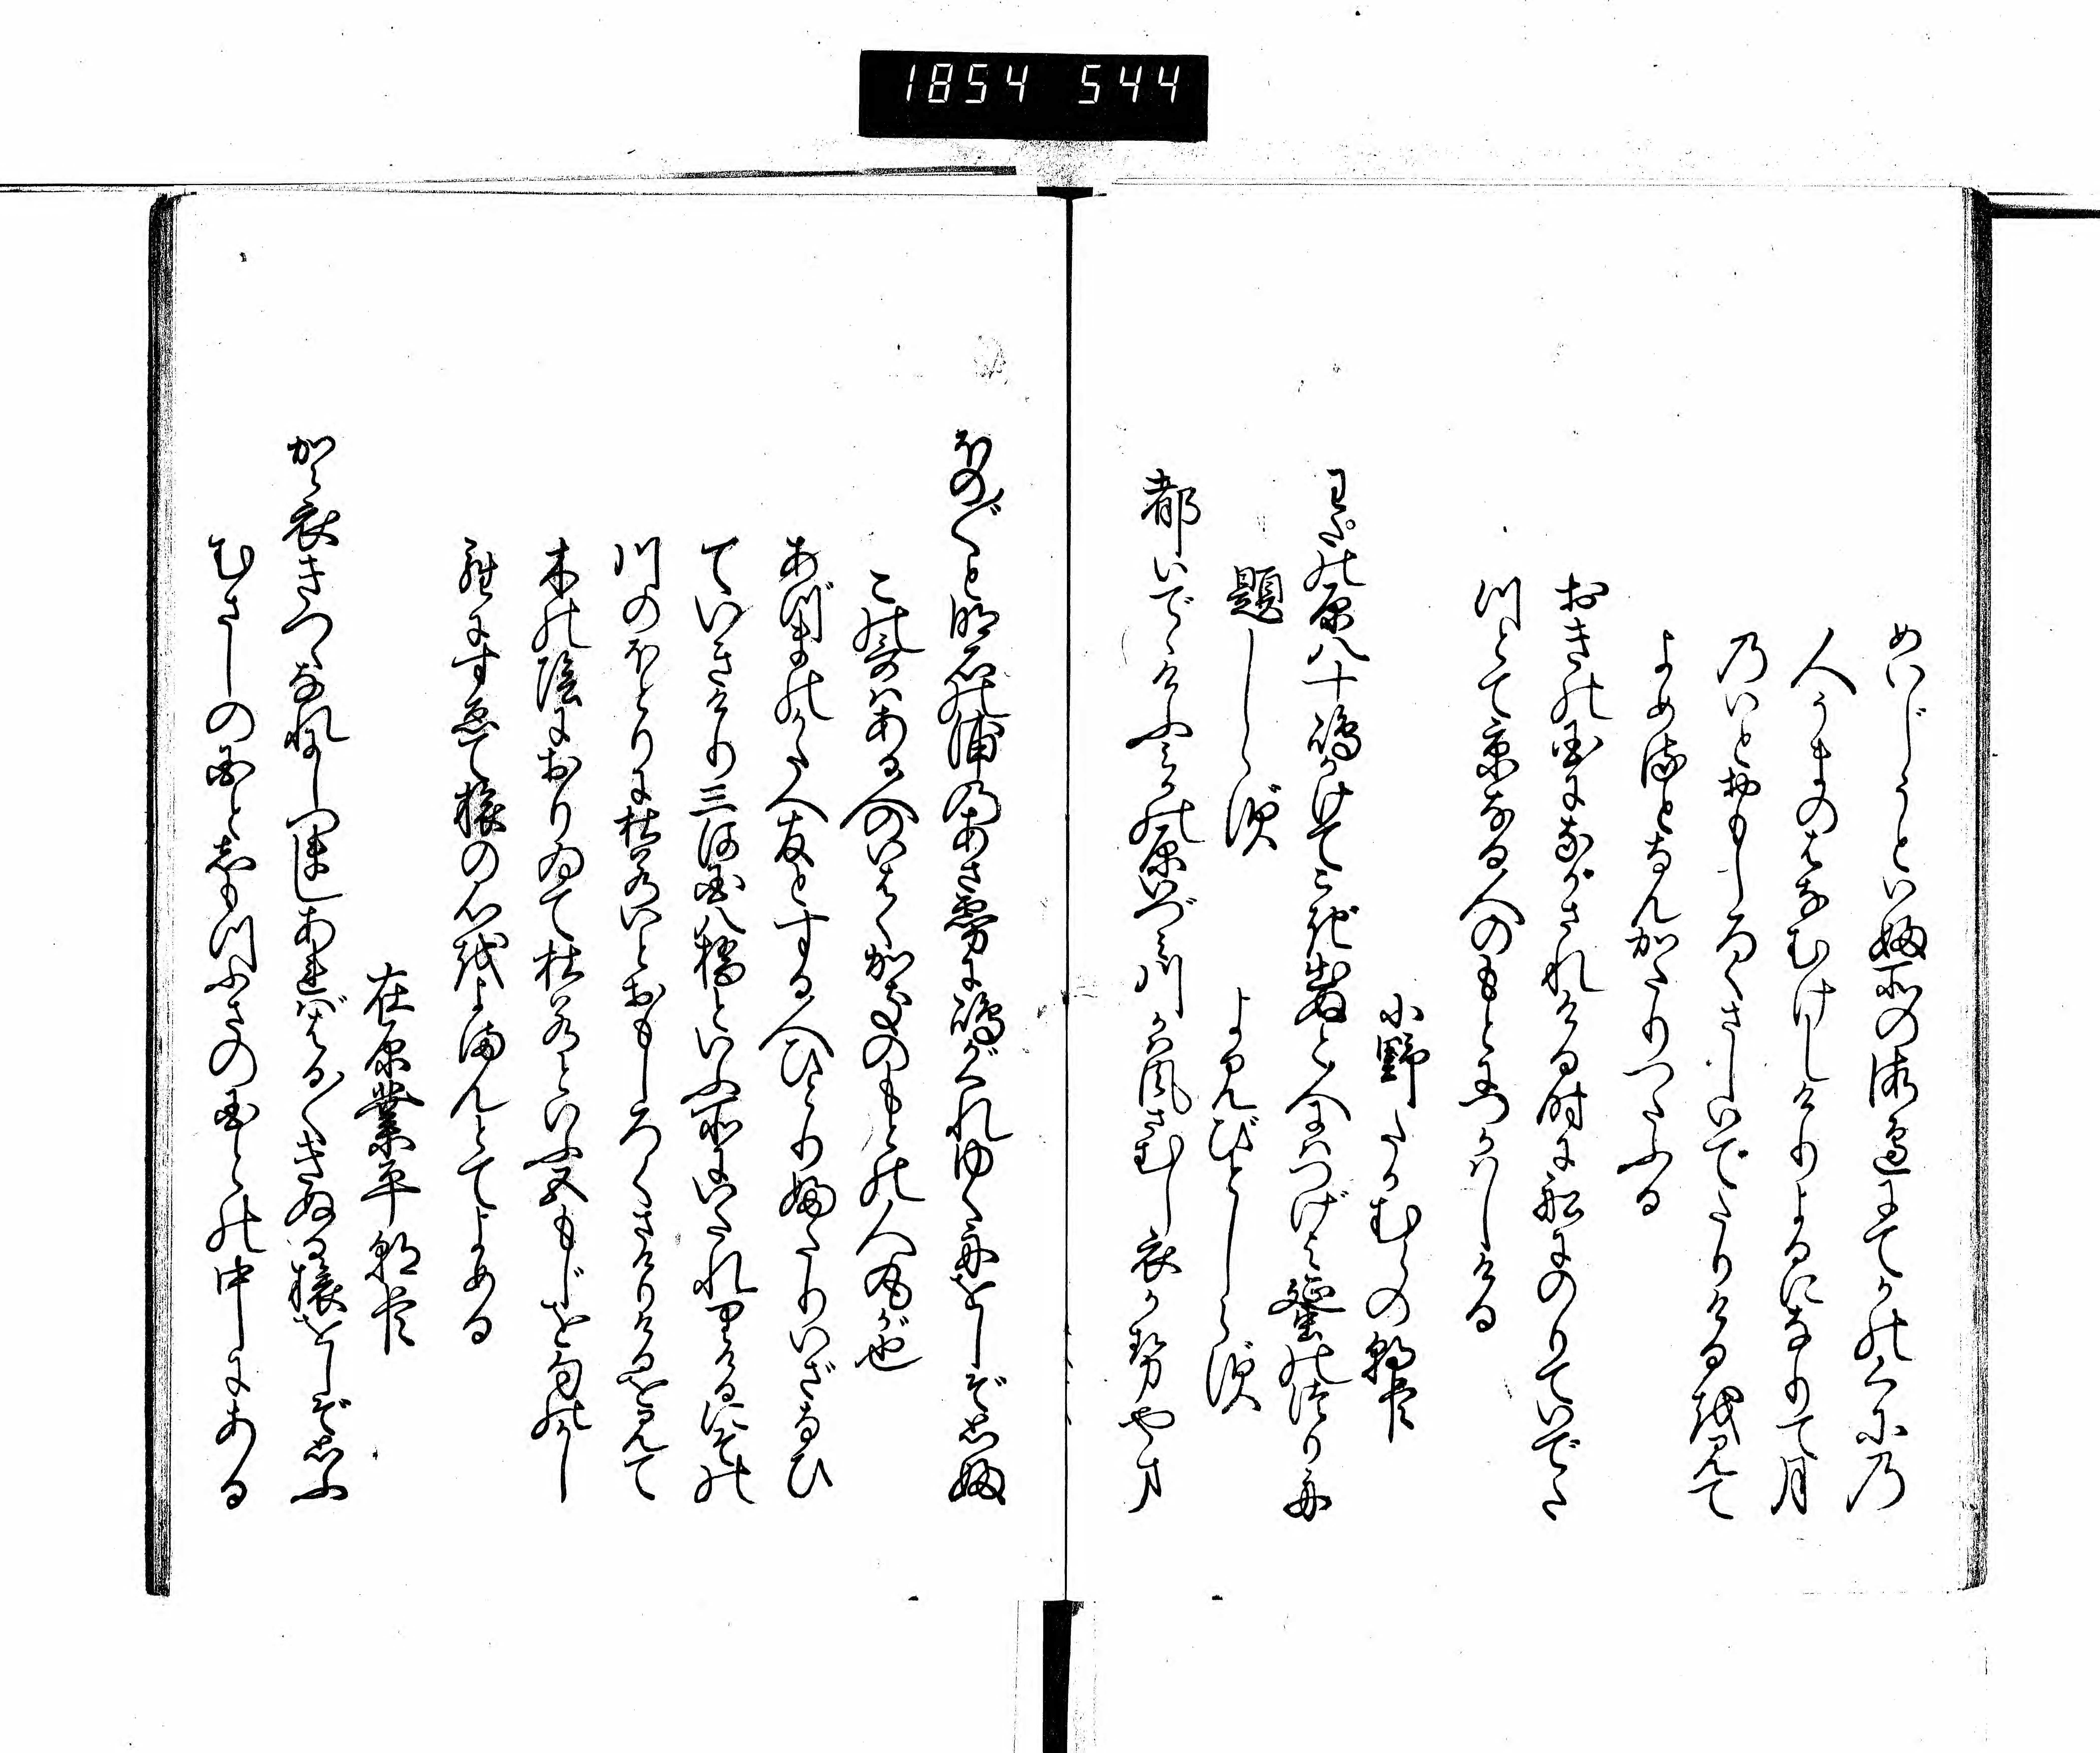 1854 544
めいじうといふ所の海辺にてかのくに乃
人うまのはなむけしけりよるになりて月
乃いとおもしろくさしいでたりけるを見て
よめるとなんかたりつたふる
おきの国にながされける時に船にのりていでた
つとて京なる人のもとにつかはしける
小野たかむらの朝臣
わたの原八十嶋かけてこぎ出ぬと人にはつげよ蜑のつり舟
題しらず
よみびとしらず
都いでゝけふみかの原いづみ川かは風さむし衣かせやま
ほのぼのと明石の浦のあさ霧に嶋がくれゆく舟をしぞ思ふ
この哥はある人のいはく柿本のもとの人丸が也
あづまのかたへ友とする人ひとりふたりいざなひ
ていきけり三河国八橋といふ所にいたれりけるにその
川のほとりに杜若いとおもしろくさけりけるを見て
木の陰におりゐて杜若といふ五もじを句のかし
らにすゑて旅の心をよまんとてよめる
在原業平朝臣
から衣きつゝなれにしつましあればはるばるきぬる旅をしぞ思ふ
むさしの国としもつふさの国との中にある